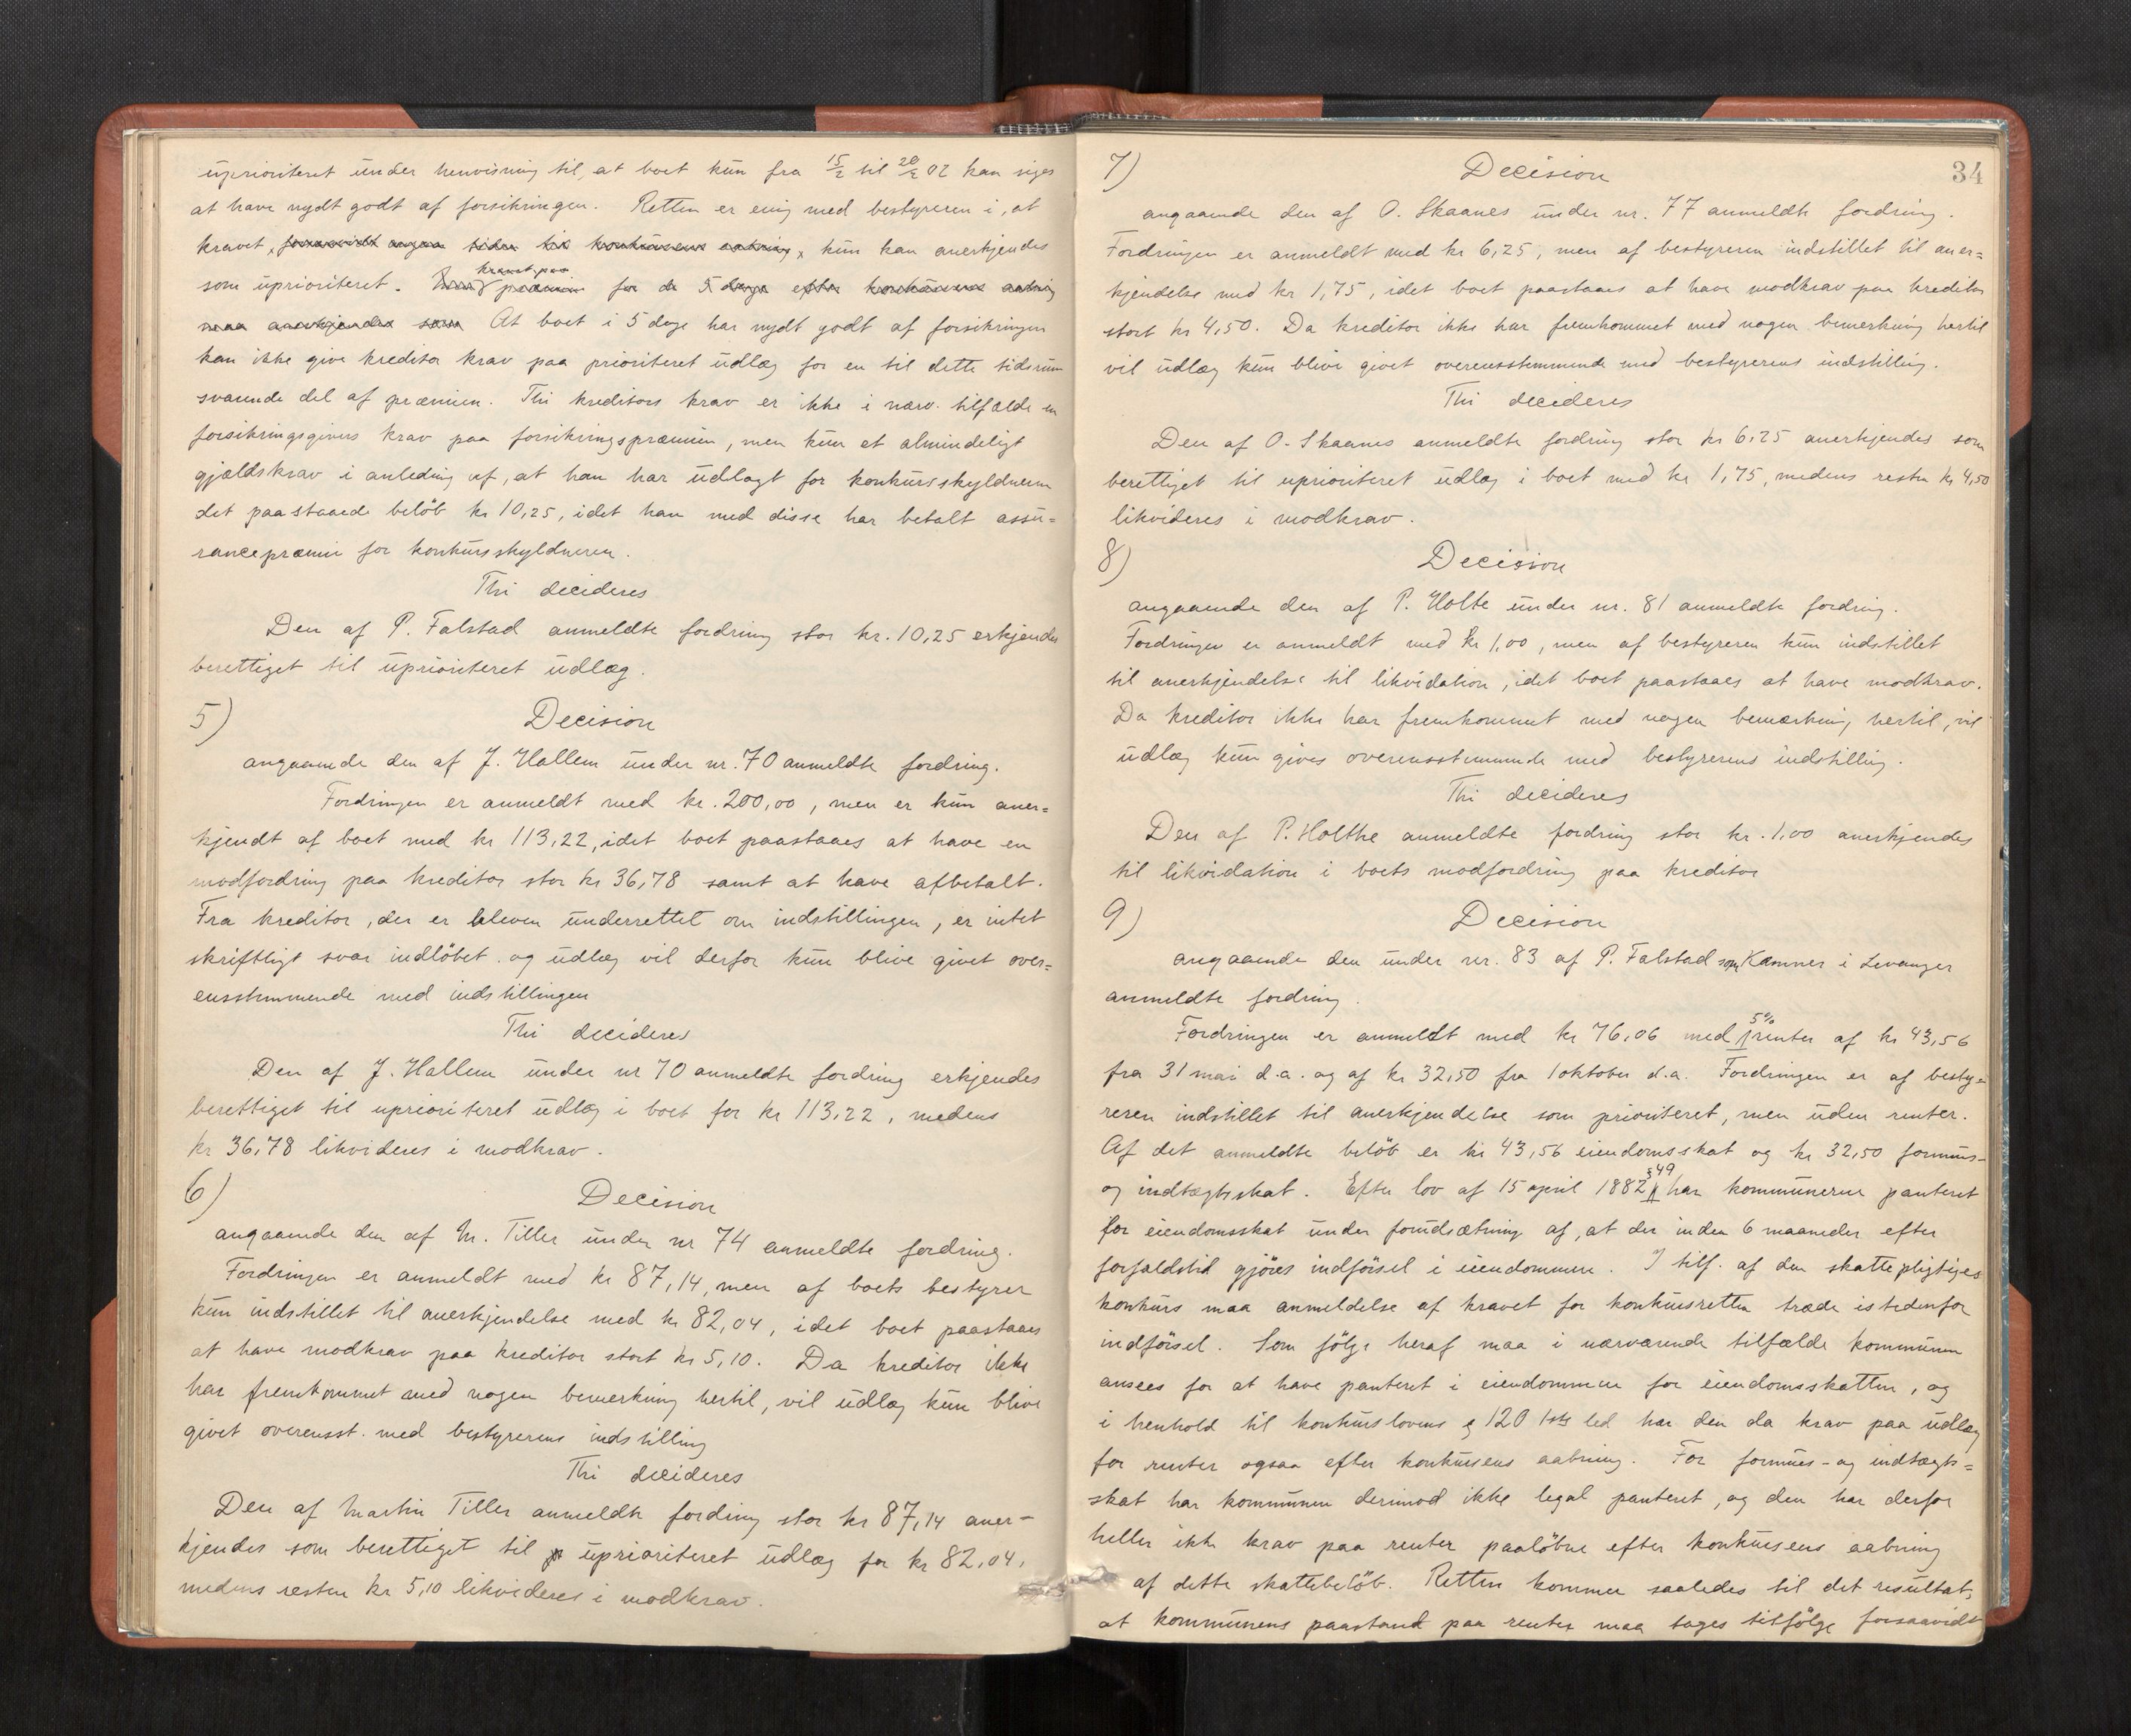 uprioriteret under henvisning til, at boet kun fra 15/2 til 20/2 02 kan siges
at have nydt godt af forsikringen. Retten er enig med bestyreren i, at
kravet, forsaavidt angaa tiden til konkursens aabning, kun kan anerkjendes
kravet paa
som uprioriteret. præmien for de 5 dage efter konkursens aabning
maa anerkjendes som At boet i 5 dage har nydt godt af forsikringen
kan ikke give kreditor krav paa prioriteret udlæg for en til dette tidsrum
svarende del af præmien. Thi kreditors krav er ikke i nærv. tilfælde en
forsikringsgivers krav paa forsikringspræmien, men kun et almindeligt
gjældskrav i anledning af, at han har udlagt for konkursskyldneren
det paastaaede belöb kr 10,25, idet han med disse har betalt assu=
rancepræmie for konkursskyldneren.
Thi decideres
Den af P. Falstad anmeldte fordring stor kr. 10,25 erkjendes
berettiget til uprioriteret udlæg.
5) Decision
angaaende den af J. Hallem under nr. 70 anmeldte fordring.
Fordringen er anmeldt med kr. 200,00, men er kun aner=
kjendt af boet med kr 113,22, idet boet paastaaes at have en
modfordring paa kreditor stor kr 36,78 samt at have afbetalt.
Fra kreditor, der er bleven underrettet om indstillingen, er intet
skriftligt svar indlöbet. og udlæg vil derfor kun blive givet over=
ensstemmende med indstillingen
Thi decideres
Den af J. Hallem under nr 70 anmeldte fordring erkjendes
berettiget til uprioriteret udlæg i boet for kr 113,22, medens
kr 36,78 likvideres i modkrav.
6) Decision
angaaende den af M. Tiller under nr 74 anmeldte fordring.
Fordringen er anmeldt med kr 87,14, men af boets bestyrer
kun indstillet til anerkjendelse med kr 82,04, idet boet paastaaes
at have modkrav paa kreditor stort kr 5,10. Da kreditor ikke
har fremkommet med nogen bemerkning hertil, vil udlæg kun blive
givet overensst. med bestyrerens indstilling
Thi decideres
Den af Martin Tiller anmeldte fordring stor kr 87,14 aner-
kjendes som berettiget til uprioriteret udlæg for kr 82,04,
medens resten kr 5,10 likvideres i modkrav.
34
7) Decision
angaaende den af O. Skaanes under nr. 77 anmeldte fordring.
Fordringen er anmeldt med kr 6,25, men af bestyreren indstillet til aner=
kjendelse med kr 1,75, idet boet paastaaes at have modkrav paa kreditor
stort kr 4,50. Da kreditor ikke har fremkommet med nogen bemerkning hertil
vil udlæg kun blive givet overensstemmende med bestyrerens indstilling.
Thi decideres
Den af O. Skaanes anmeldte fordring stor kr 6,25 anerkjendes som
berettiget til uprioriteret udlæg i boet med kr 1,75, medens resten kr 4,50
likvideres i modkrav.
8) Decision
angaaende den af P. Holte under nr. 81 anmeldte fordring.
Fordringen er anmeldt med kr 1,00, men af bestyreren kun indstillet
til anerkjendelse til likvidation, idet boet paastaaes at have modkrav.
Da kreditor ikke har fremkommet med nogen bemærkning hertil, vil
udlæg kun gives overensstemmende med bestyrerens indstilling.
Thi decideres
Den af P. Holthe anmeldte fordring stor kr. 1,00 anerkjendes
til likvidation i boets modfordring paa kreditor
9) Decision
angaaende den under nr. 83 af P. Falstad som Kæmner i Levanger
anmeldte fordring.
5%
Fordringen er anmeldt med kr 76,06 med renter af kr 43,56
fra 31 mai d.a. og af kr 32,50 fra 1 oktober d.a. Fordringen er af besty=
reren indstillet til anerkjendelse som prioriteret, men uden renter.
Af det anmeldte belöb er kr 43,56 eiendomsskat og kr 32,50 formues-
§49
og indtægtsskat. Efter lov af 15 april 1882 har kommunerne panteret
for eiendomsskat under forudsætning af, at der inden 6 maaneder efter
forfaldstid gjöres indförsel i eiendommen. I tilf. af den skattepligtiges
konkurs maa anmeldelse af kravet for konkursretten træde istedenfor
indförsel. Som fölge heraf maa i nærværende tilfælde kommunen
ansees for at have panteret i eiendommen for eiendomsskatten, og
i henhold til konkurslovens § 120 1ste led har den da krav paa udlæg
for renter ogsaa efter konkursens aabning. For formues- og indtægts=
skat har kommunen derimod ikke legal panteret, og den har derfor
heller ikke krav paa renter paalöbne efter konkursens aabning
af dette skattebelöb. Retten kommer saaledes til det resultat,
at kommunens paastand paa renter maa tages tilfölge forsaavidt